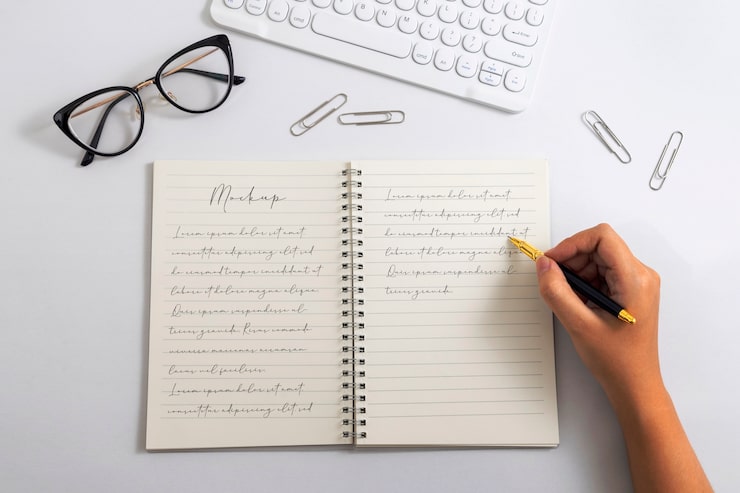 Mockup
Lorem ipsum dolor sit amet,
consectetur adipiscing elit sed
do eiusmod tempor incididunt ut
labore et dolore magna aliqua.
Quis ipsum suspendisse ul-
trices gravida. Risus commodo
viverra maecenas accumsan
lacus vel facilisis.
Lorem ipsum dolor sit amet,
consectetur adipiscing elit sed
Lorem ipsum dolor sit amet,
consectetur adipiscing elit sed
do eiusmod tempor incididunt ut
labore et dolore magna
Quis ipsum suspendisse ul-
trices gravida.